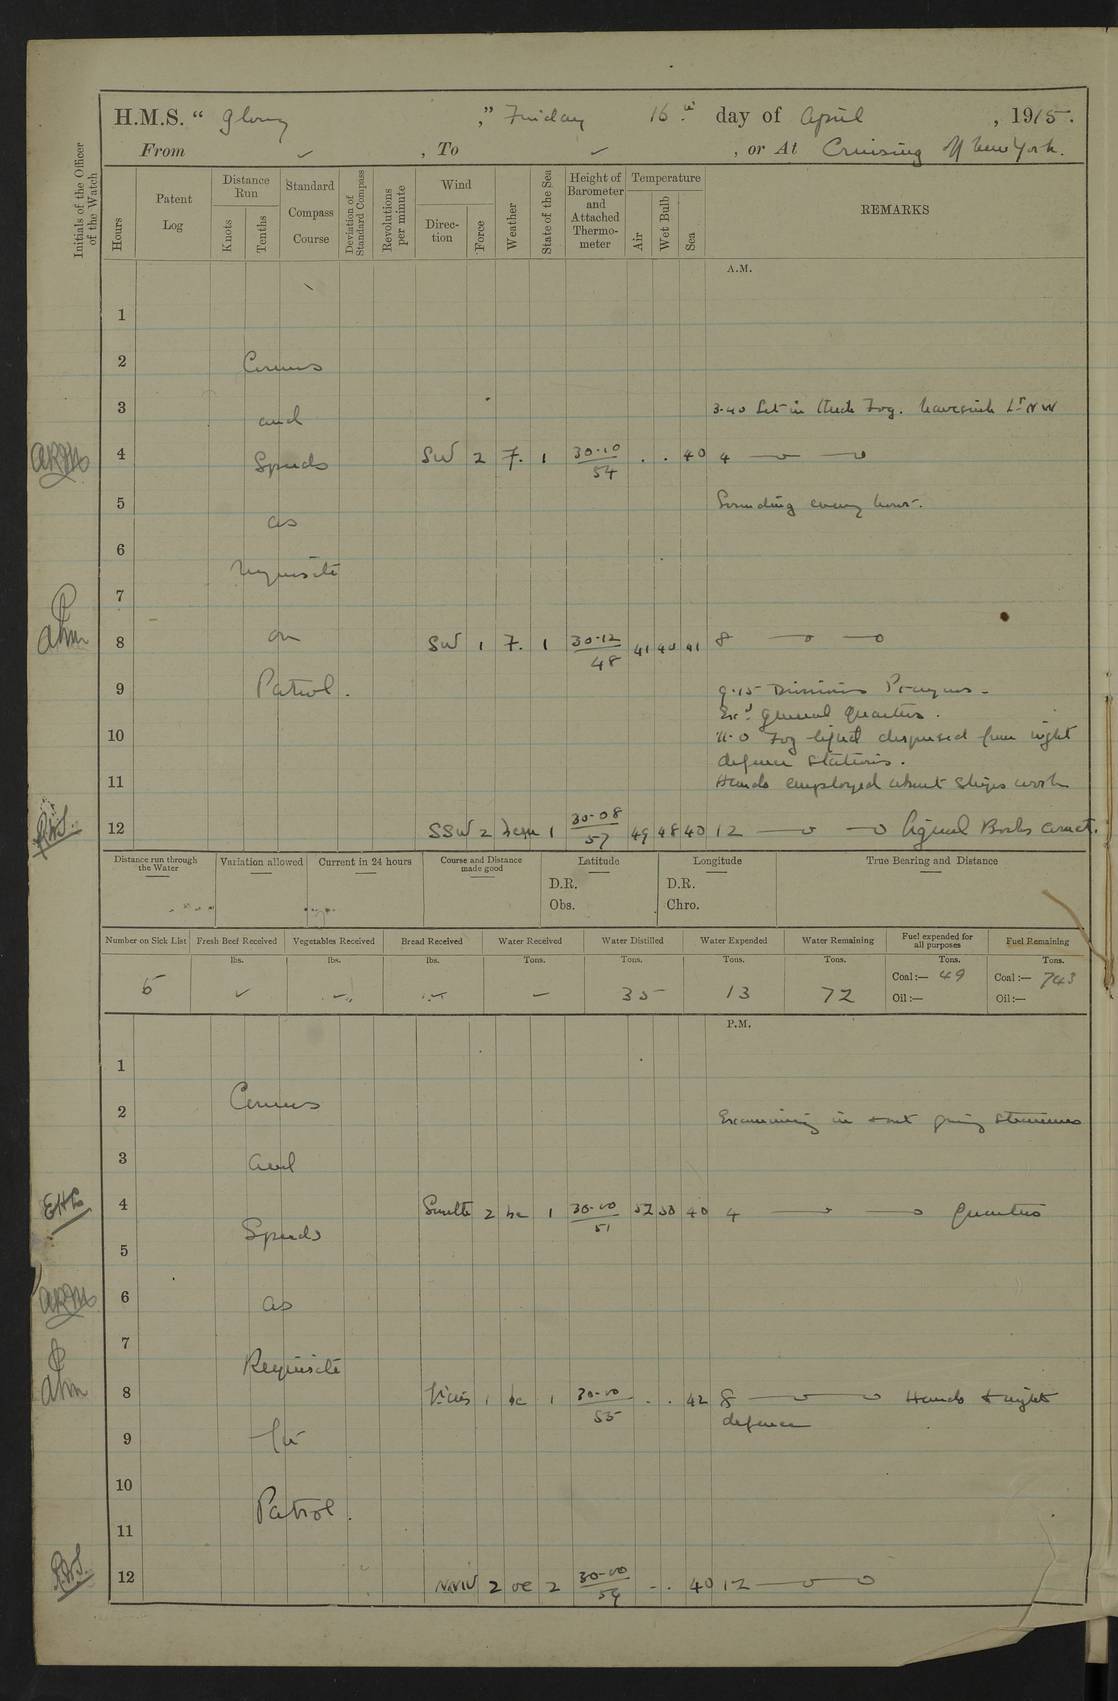 H.M.S. “ Glory ,” Friday 16th day of April , 1915.
From ✓ , To ✓ , or At Cruising off New York.
Initials of the Officer of the Watch
Hours
Patent Log
Distance Run
Knots
Tenths
Standard Compass Course
Deviation of Standard Compass
Revolutions per minute
Wind
Direction
Force
Weather
State of the Sea
Height of Barometer and Attached Thermometer
Temperature
Air
Wet Bulb
Sea
REMARKS
A.M.
1
2 Courses
3 and 3.40 Set in thick Fog. Lt NW
4 Speeds SW 2 F. 1 30.10 54 . . 40 4
5 as Sounding every hour.
6 requisite
7
8 on SW 1 F. 1 30.12 48 41 40 41 8
9 Patrol. 9.15 Divisions Prayers.
Exd general Quarters.
10 Fog dispersed from night
defence stations.
11 Hands employed about ships work
12 SSW 2 1 30.08 57 49 48 40 12 Signal Books correct.
Distance run through the Water
Variation allowed
Current in 24 hours
Course and Distance made good
Latitude
D.R.
Obs.
Longitude
D.R.
Chro.
True Bearing and Distance
Number on Sick List
Fresh Beef Received
Vegetables Received
Bread Received
Water Received
Water Distilled
Water Expended
Water Remaining
Fuel expended for all purposes
Fuel Remaining
lbs. lbs. lbs. Tons. Tons. Tons. Tons. Tons. Tons.
Coal:— 49 Coal:— 743
5 ✓ – – – 35 13 72 Oil:— Oil:—
P.M.
1
2 Courses Examining in & out going steamers
3 and
4 Speeds 2 bc 1 30.00 51 52 50 40 4 Quarters
5
6 as
7 Requisite
8 1 bc 1 30.00 55 . . 42 8 Hands to night
defence
9 for
10 Patrol.
11
12 NNW 2 oc 2 30.00 54 - . 40 12